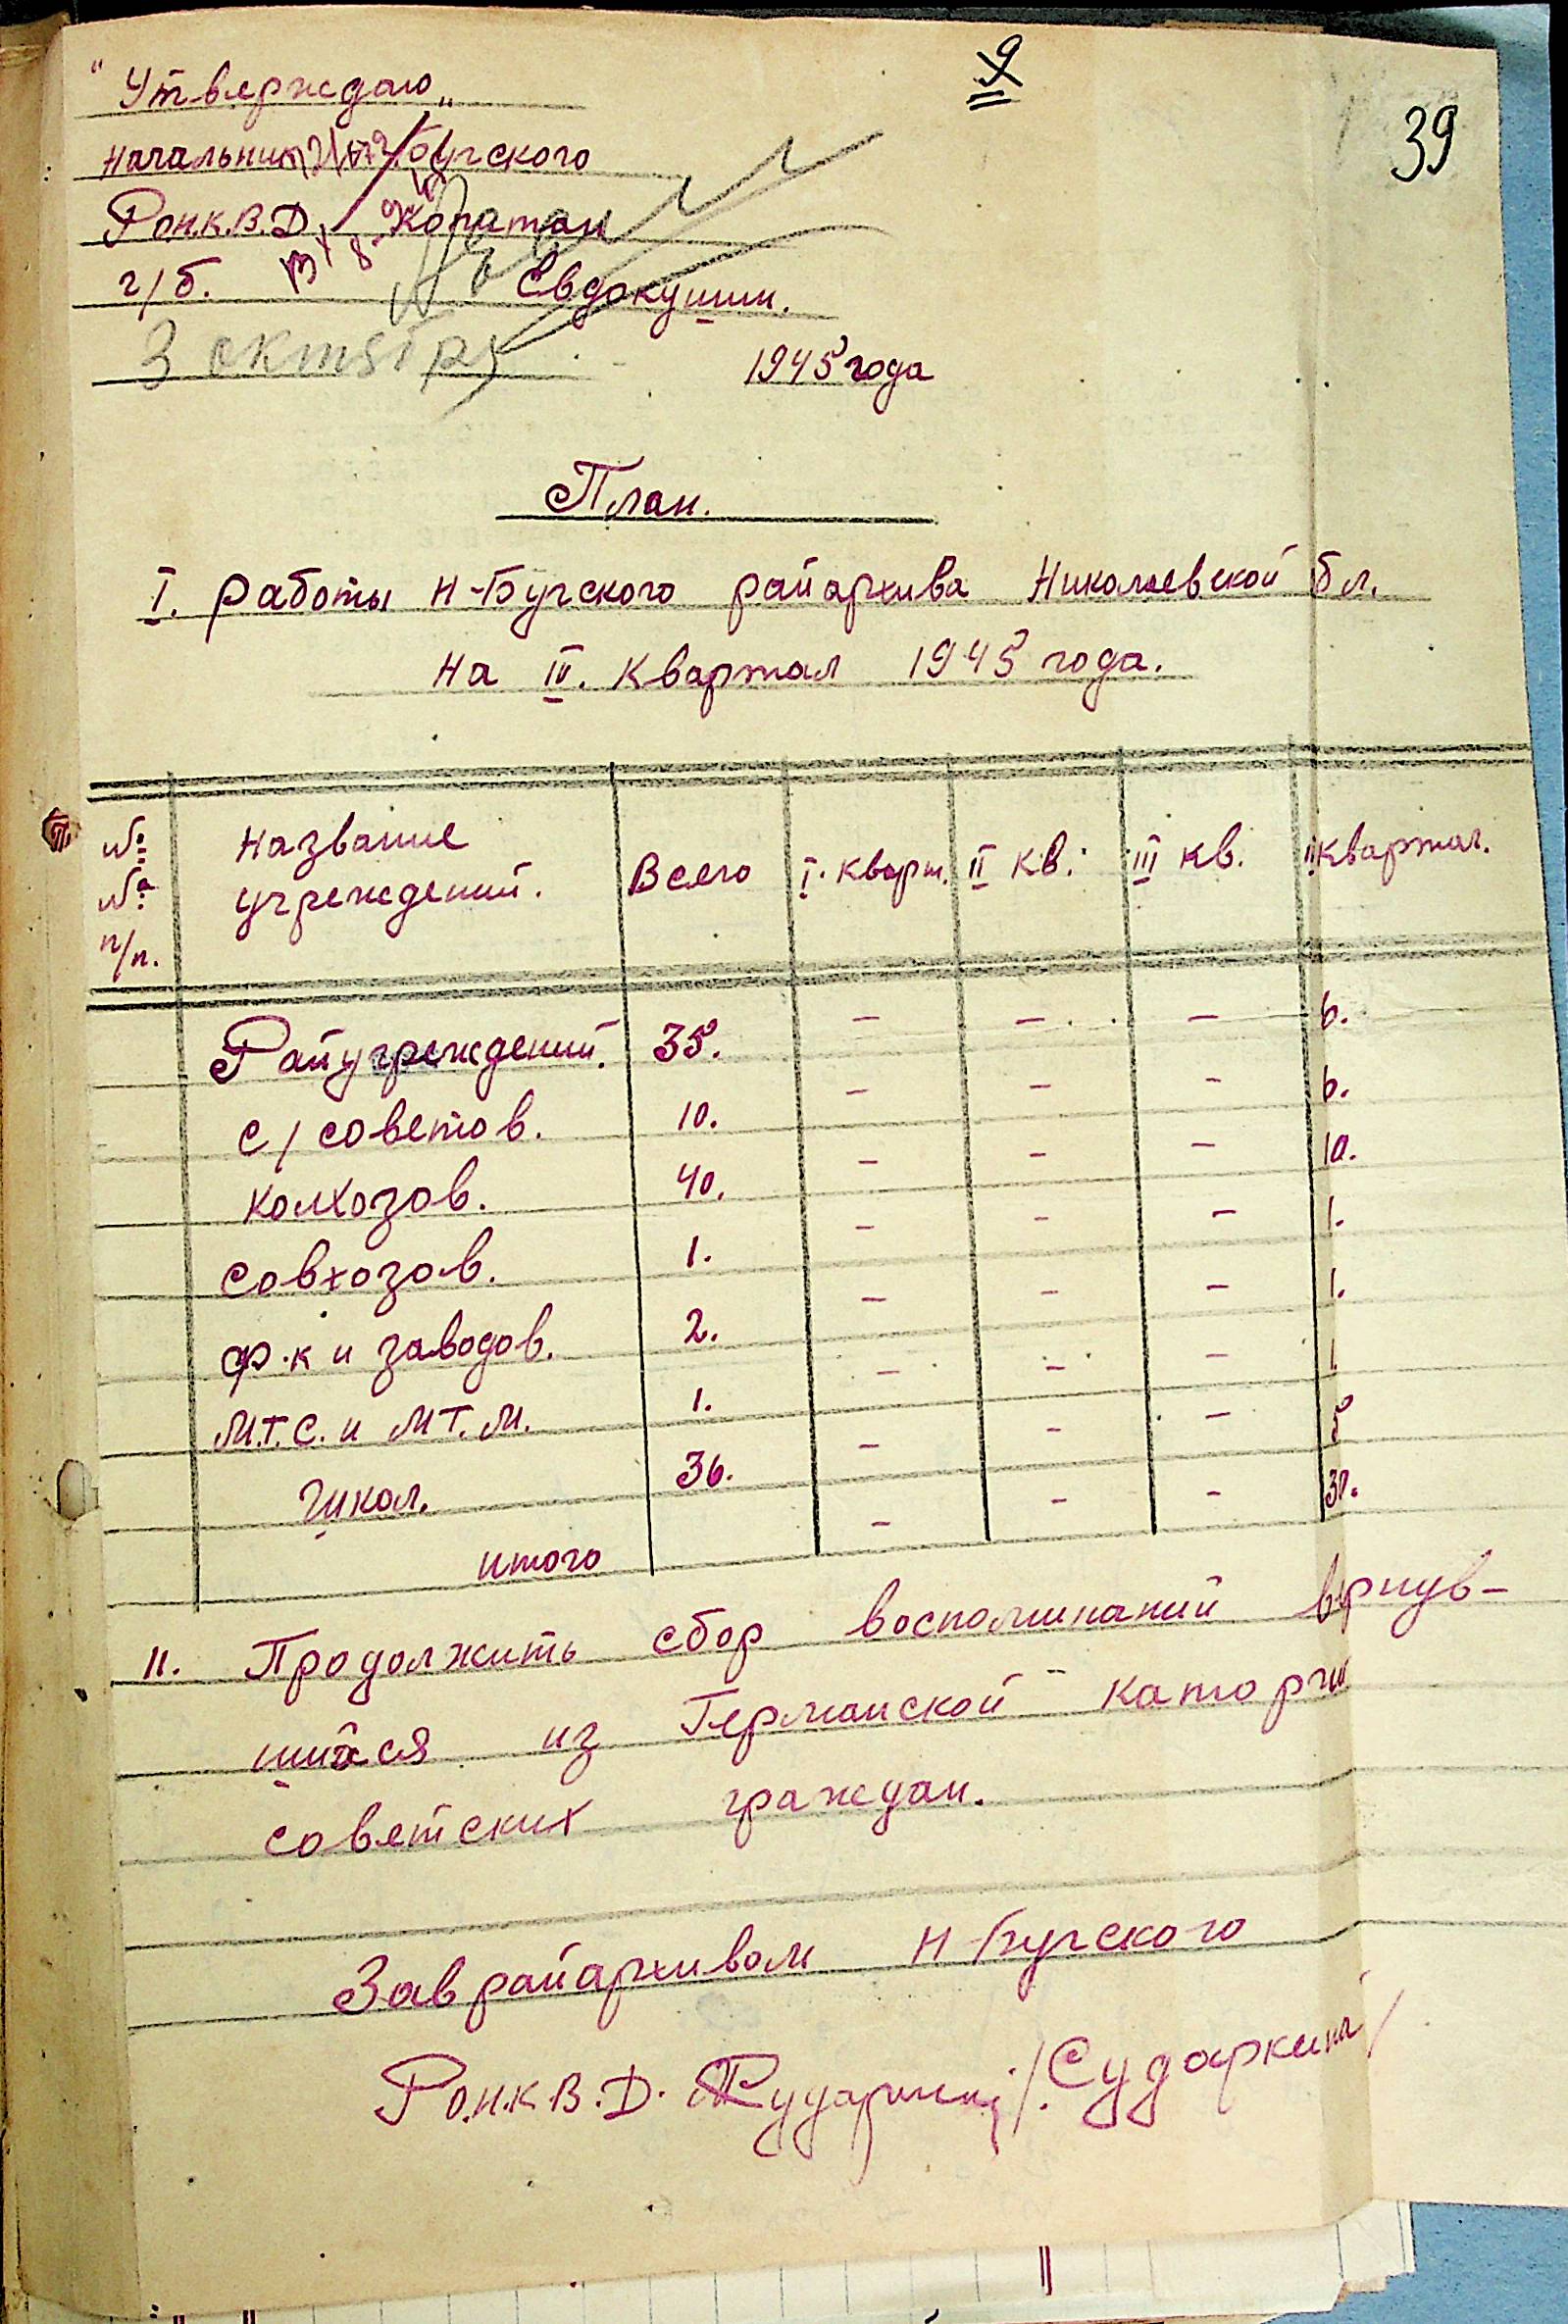 9
39
"Утверждаю"
Начальник Н-Бугского
Р.О.Н.К.В.Д. Капитан
г/б. Евдокушин.
3 октября 1945 года
План.
I. работы Н-Бугского райархива Николаевской обл.
На IV. Квартал 1945 года.
№ № п/п. Название учреждений. Всего I. кварт. II кв. III кв. IV квартал.
Райучреждений. 35. - - - 6.
с/советов. 10. - - - 6.
Колхозов. 40. - - - 10.
Совхозов. 1. - - - 1.
ф.к и заводов. 2. - - - 1.
М.Т.С. и М.Т.М. 1. - - - 1
Школ. 36. - - - 5
итого - - - 30.
II. Продолжить сбор воспоминаний вернув-
шихся из Германской каторги
советских граждан.
Зав райархивом Н-Бугского
Р.О.Н.К.В.Д. /Сударкина/